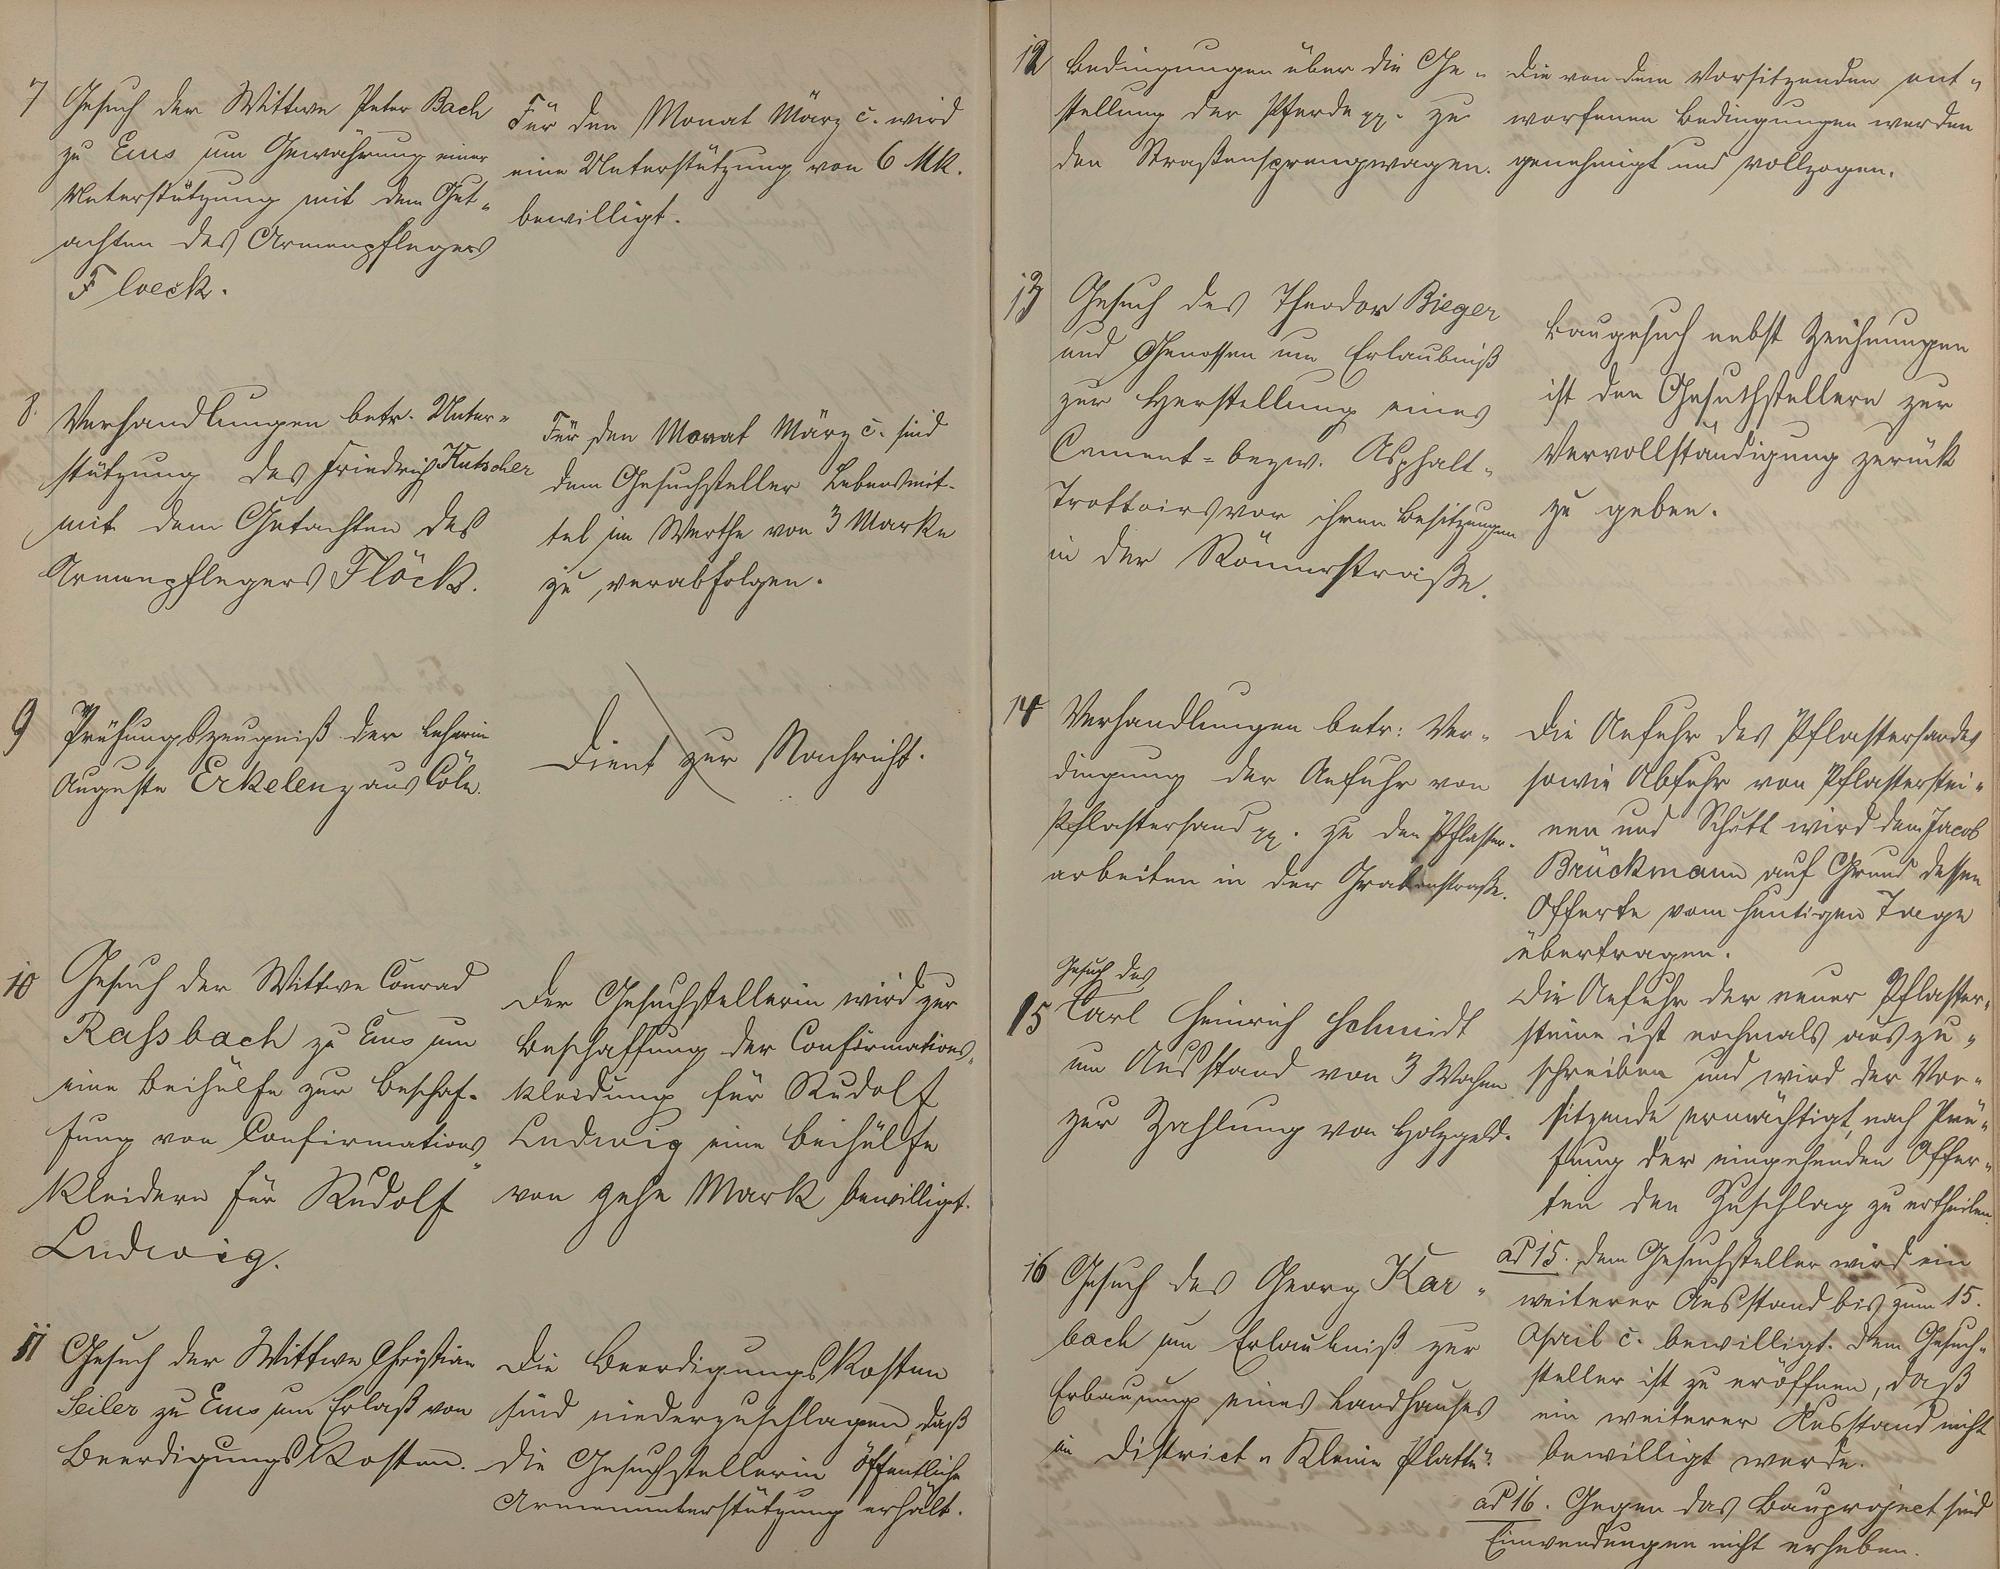 7
Gesuch der Wittwe Peter Bach
zu Ems um Gewährung einer
Unterstützung mit dem Gut-
achten des Armenpflegers
Floeck.
Für den Monat März c. wird
eine Unterstützung von 6 Mk.
bewilligt.
8.
Verhandlungen betr. Unter-
stützung des Friedrich Kutscher
mit dem Gutachten des
Armenpflegers Flöck.
Für den Monat März c. sind
dem Gesuchsteller Lebensmit-
tel im Werthe von 3 Marke
zu verabfolgen.
9
Prüfungszeugniß der Lehrerin
Auguste Erkelenz aus Cöln.
Dient zur Nachricht.
10
Gesuch der Wittwe Conrad
Rassbach zu Ems um
eine Beihülfe zur Beschaf-
fung von Confirmations-
kleidern für Rudolf
Ludwig.
Der Gesuchstellerin wird zur
Beschaffung der Confirmations-
kleidung für Rudolf
Ludwig eine Beihülfe
von zehn Mark bewilligt.
11
Gesuch der Wittwe Christian
Seiler zu Ems um Erlaß von
Beerdigungskosten.
Die Beerdigungskosten
sind niederzuschlagen, daß
die Gesuchstellerin öffentliche
Armenunterstützung erhält.
12
Bedingungen über die Ge-
stellung der Pferde pp. zu
den Straßensprengwagen.
Die von dem Vorsitzenden ent-
worfenen Bedingungen werden
genehmigt und vollzogen.
13
Gesuch des Theodor Bieger
und Genossen um Erlaubniß
zur Herstellung eines
Cement- bezw. Asphalt-
Trottoirs vor ihren Besitzungen
in der Römerstraße.
Baugesuch nebst Zeichnungen
ist den Gesuchstellern zur
Vervollständigung zurück
zu geben.
14
Verhandlungen betr: Ver-
dingung der Anfuhr von
Pflastersand pp. zu den Pflaster-
arbeiten in der Grabenstraße.
Die Anfuhr des Pflastersandes
sowie Abfuhr von Pflasterstei-
nen und Schutt wird dem Jacob
Brückmann auf Grund dessen
Offerte vom heutigen Tage
übertragen.
Die Anfuhr der neuer Pflaster-
steine ist nochmals auszu-
schreiben und wird der Vor-
sitzende ermächtigt, nach Prü-
fung der eingehenden Offer-
ten den Zuschlag zu ertheilen.
15
Gesuch des
Carl Heinrich Schmidt
um Ausstand von 3 Wochen
zur Zahlung von Holzgeld.
ad 15. Dem Gesuchsteller wird ein
weiterer Ausstand bis zum 15.
April c. bewilligt. Dem Gesuch-
steller ist zu eröffnen, daß
ein weiterer Ausstand nicht
bewilligt werde.
16
Gesuch des Georg Kar-
bach um Erlaubniß zur
Erbauung eines Landhauses
im District "Kleine Platte".
ad 16. Gegen das Bauproject sind
Einwendungen nicht erheben.